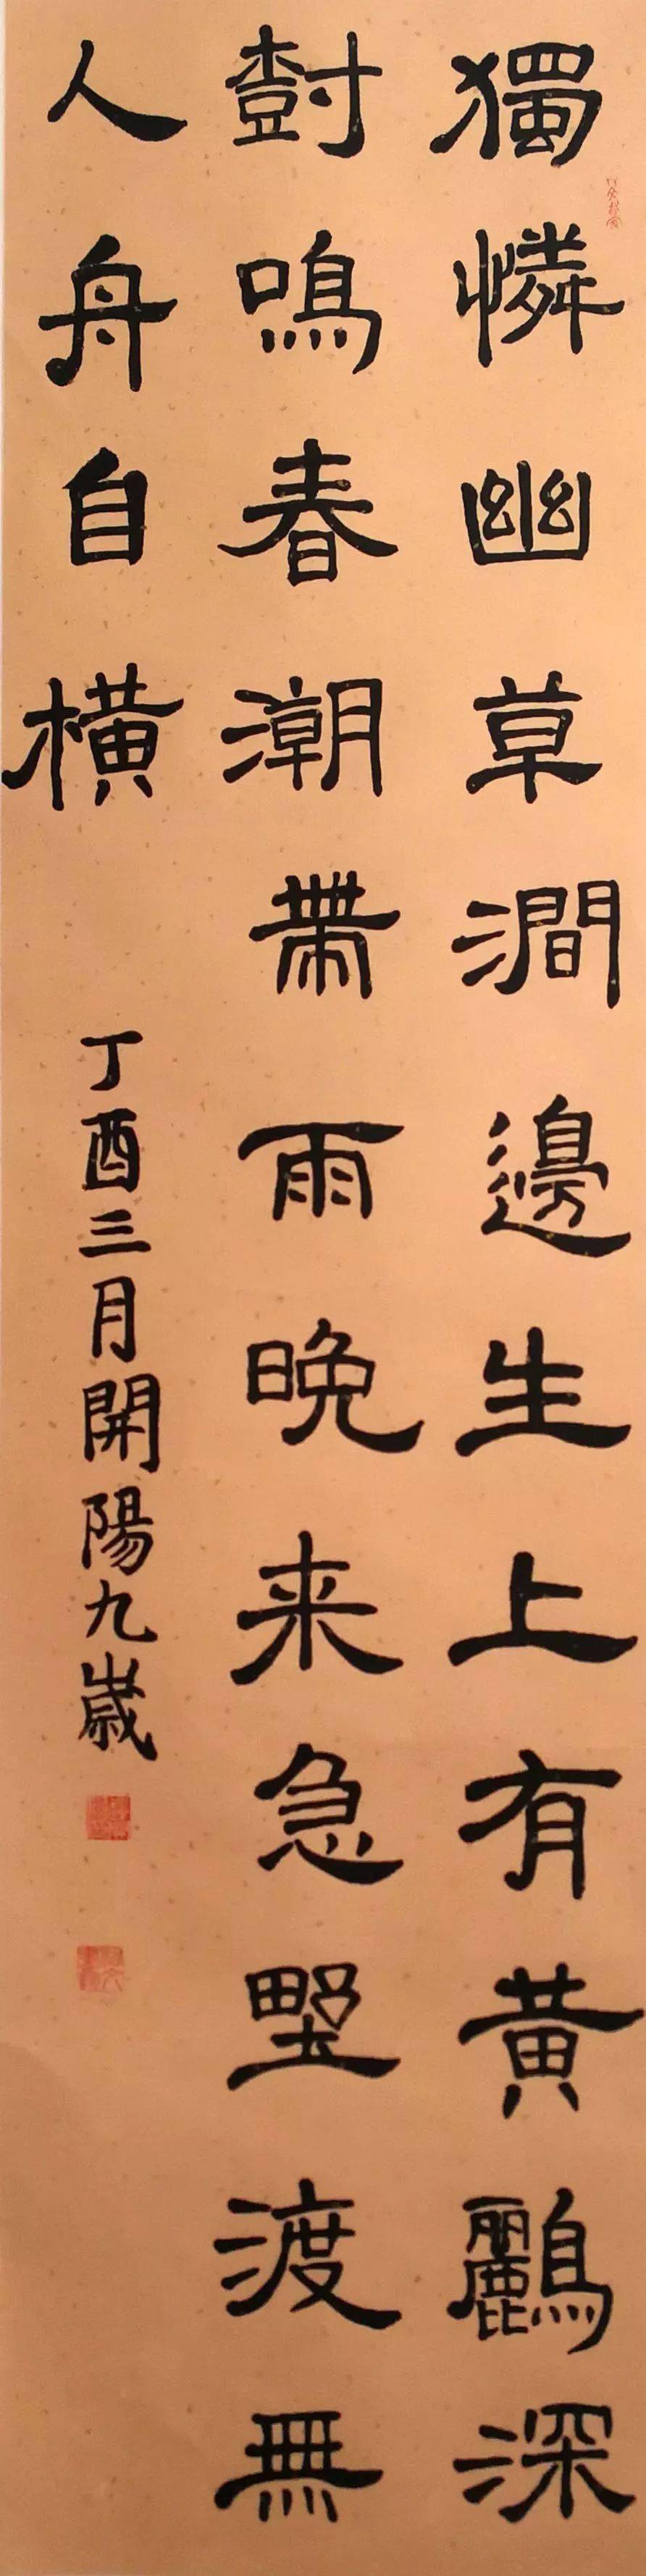 獨憐幽草澗邊生上有黃鸝深
尌鳴春潮帶雨晚来急野渡無
人舟自橫
丁酉三月開陽九歲